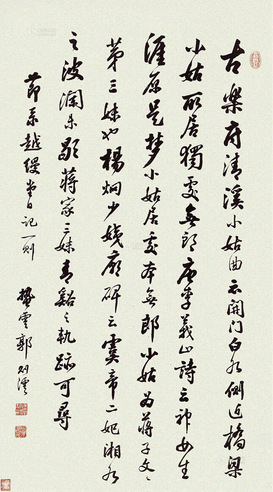 古樂府清溪小姑曲云開門白水側近橋梁
小姑所居獨處無郎唐李義山詩云神女生
涯原是夢小姑居處本無郎小姑為蔣子文
第三妹也楊炯少姨廟碑云虞帝二妃湘水
之波瀾未歇蔣家三妹青谿之軌跡可尋
節系越縵堂日記一則